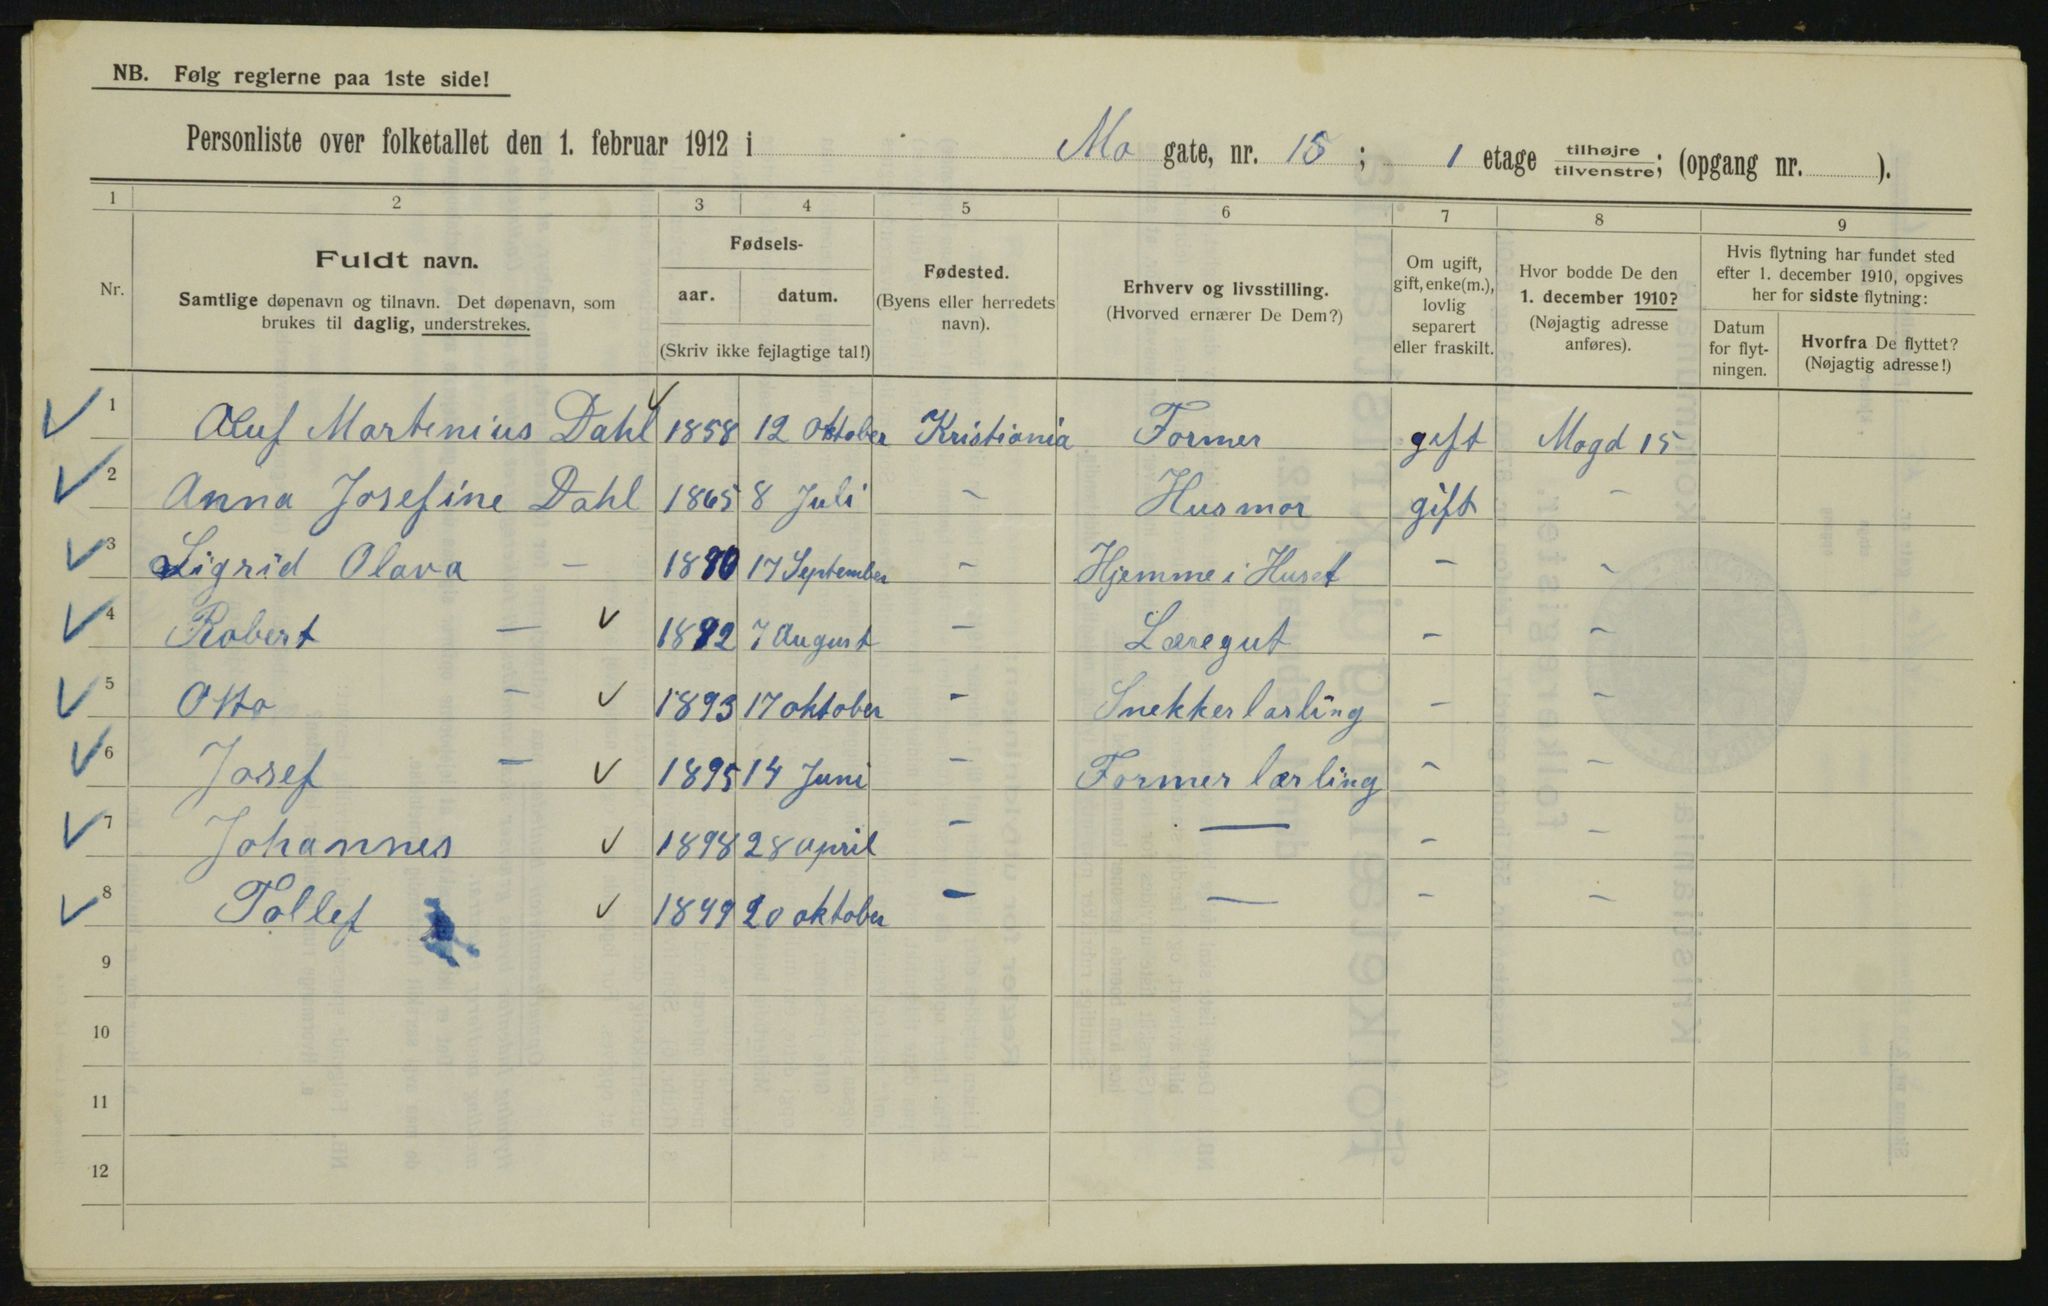 NB. Følg reglerne paa 1ste side!
Personliste over folketallet den 1. februar 1912 i Mo gate, nr. 15; 1 etage tilhøjre/tilvenstre; (opgang nr. ).
1 2 3 4 5 6 7 8 9
Nr.
Fuldt navn.
Samtlige døpenavn og tilnavn. Det døpenavn, som
brukes til daglig, understrekes.
Fødsels-
aar. datum.
(Skriv ikke fejlagtige tal!)
Fødested.
(Byens eller herredets
navn).
Erhverv og livsstilling.
(Hvorved ernærer De Dem?)
Om ugift,
gift, enke(m.),
lovlig
separert
eller fraskilt.
Hvor bodde De den
1. december 1910?
(Nøjagtig adresse
anføres).
Hvis flytning har fundet sted
efter 1. december 1910, opgives
her for sidste flytning:
Datum
for flyt-
ningen.
Hvorfra De flyttet?
(Nøjagtig adresse!)
1 Oluf Martenius Dahl 1858 12 Oktober Kristiania Former gift Mogd 15
2 Anna Josefine Dahl 1865 8 Juli - Husmor gift -
3 Sigrid Olava - 1890 17 September - Hjemme i Huset - -
4 Robert - 1892 7 August - Læregut - -
5 Otto - 1893 17 oktober - Snekkerlærling - -
6 Josef - 1895 14 Juni - Former lærling - -
7 Johannes 1898 28 april - — - -
8 Tollef 1899 20 oktober - — - -
9
10
11
12